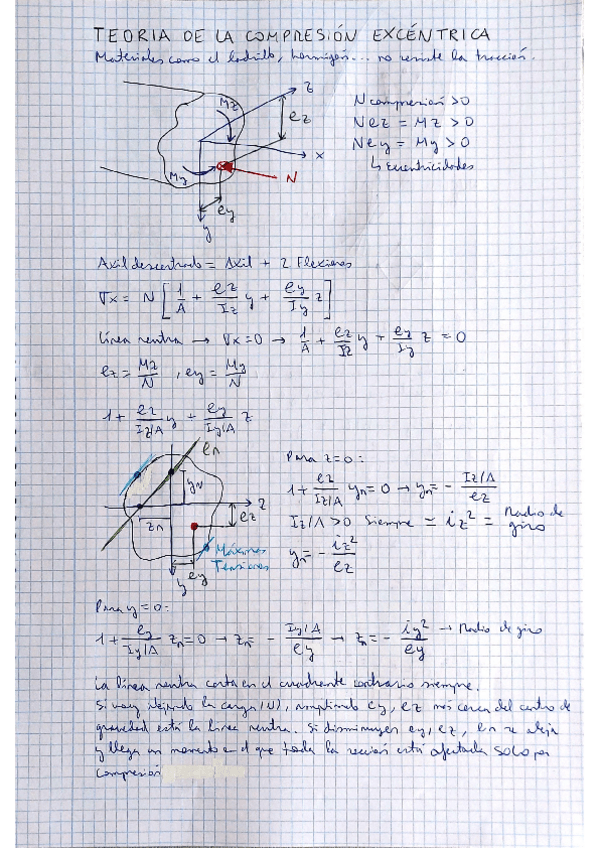 TEORIA DE LA COMPRESIÓN EXCÉNTRICA
Materiales como el ladrillo, hormigón... no resiste la tracción.
Mz
z
ez
x
My
N
ey
y
N compresión > 0
Nez = Mz > 0
Ney = My > 0
↳ Excentricidades
Axil descentrado = Axil + 2 Flexiones
σx = N [ 1/A + ez/Iz y + ey/Iy z ]
Línea neutra → σx = 0 → 1/A + ez/Iz y + ey/Iy z = 0
ez = Mz/N , ey = My/N
1 + ez/Iz/A y + ey/Iy/A z
en
yn
z
zn
ez
ey
y
Máximas
Tensiones
Para z=0:
1 + ez/Iz/A yn = 0 → yn = - Iz/A/ez
Iz/A > 0 siempre = iz² = Radio de giro
yn = - iz²/ez
Para y=0:
1 + ey/Iy/A zn = 0 → zn = - Iy/A/ey → zn = - iy²/ey → Radio de giro
La línea neutra corta en el cuadrante contrario siempre.
Si voy alejando la carga (N), ampliando ey, ez más cerca del centro de
gravedad está la línea neutra. Si disminuyen ey, ez, en se aleja
y llega un momento en el que toda la sección está afectada solo por
compresión